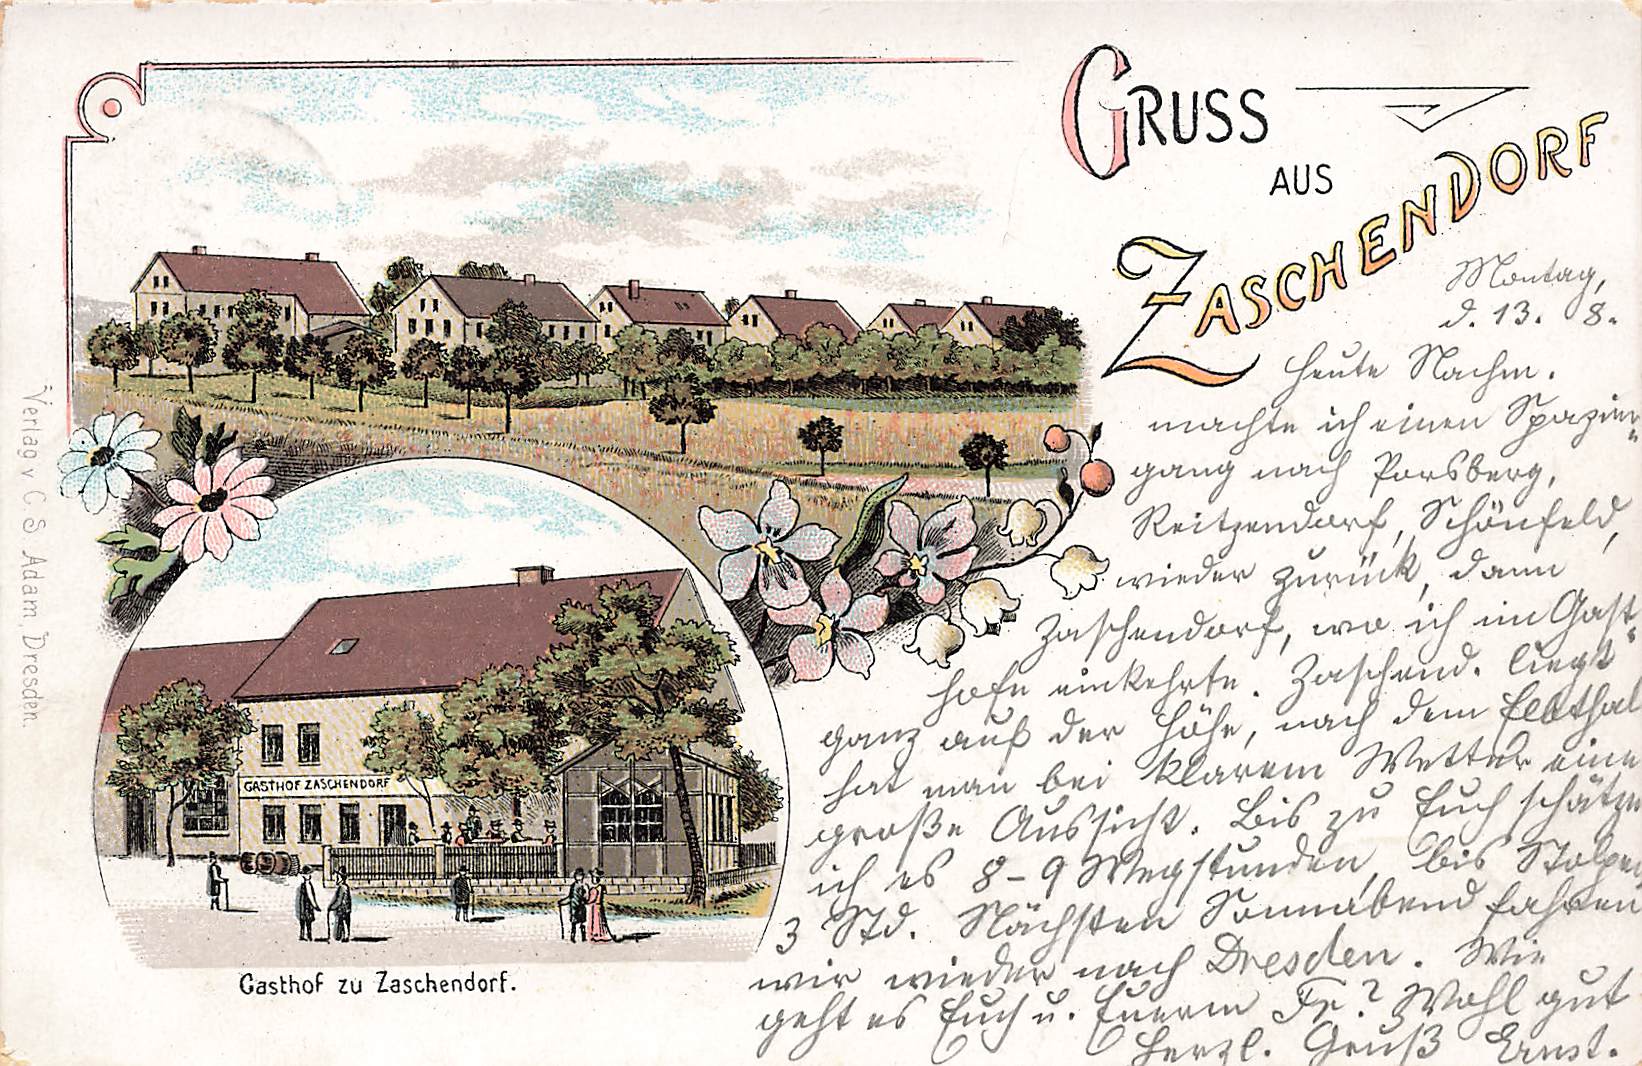 GRUSS
AUS
ZASCHENDORF
Montag,
d. 13. 8.
Heute Nachm.
machte ich einen Spazier-
gang nach Porsberg,
Reitzendorf, Schönfeld,
wieder zurück, dann
Zaschendorf, wo ich im Gast-
hofe einkehrte. Zaschend. liegt
ganz auf der Höhe, nach dem Elbthal
hat man bei klarem Wetter eine
große Aussicht. Bis zu Euch schätze
ich es 8-9 Wegstunden, bis Stolpen
3 Std. Nächsten Sonnabend fahren
wir wieder nach Dresden. Wie
geht es Euch u. Euerm Fr? Wohl gut
Herzl. Gruß Ernst.
GASTHOF ZASCHENDORF
Gasthof zu Zaschendorf.
Verlag v C. S. Adam Dresden.